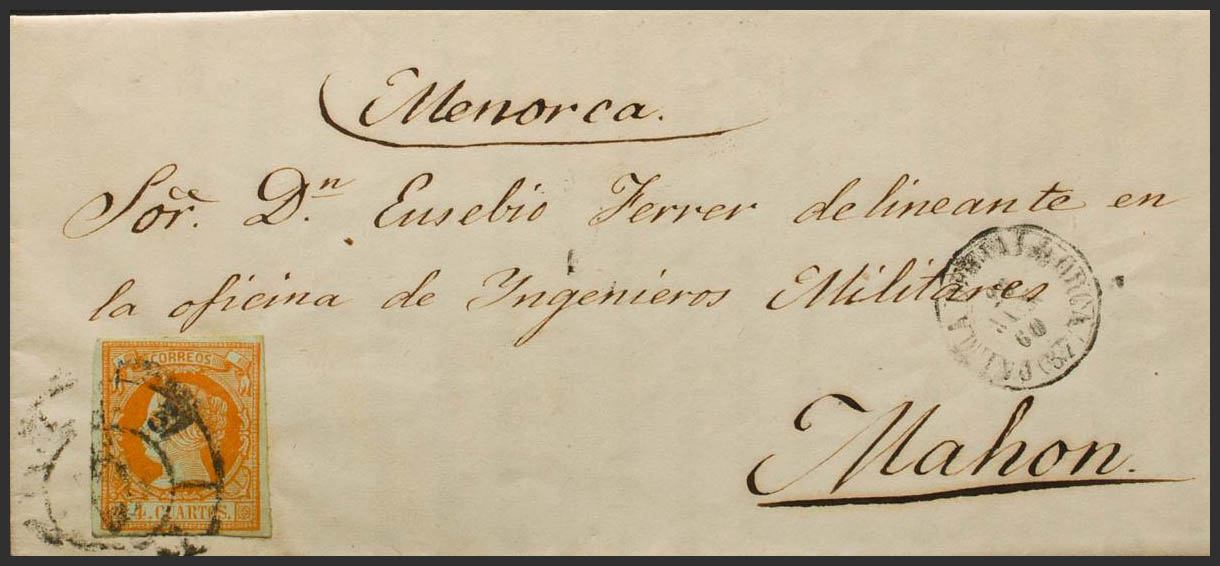 Menorca.
Sor. Dn. Eusebio Ferrer delineante en
la oficina de Ingenieros Militares
Mahon.
CORREOS
4. CUARTOS.
PALMA MALLORCA (32)
60